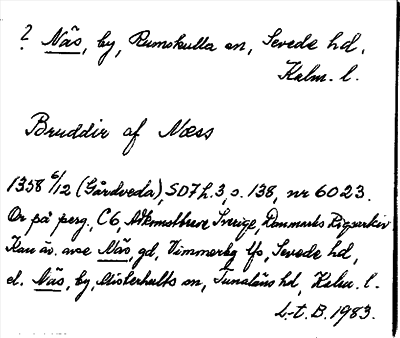 ? Näs, by, Rumskulla sn, Sevede hd,
Kalm. l.
Bruddir af Næss
1358 6/12 (Gårdveda), SD 7 h. 3, s. 138, nr 6023.
Or på perg., C6, Atkomstbreve Sverige, Danmarks Rigsarkiv
Kan äv. avse Näs, gd, Vimmerby lfs, Sevede hd,
el. Näs, by, Misterhults sn, Tunaläns hd, Kalm. l.
L-t. B. 1983.